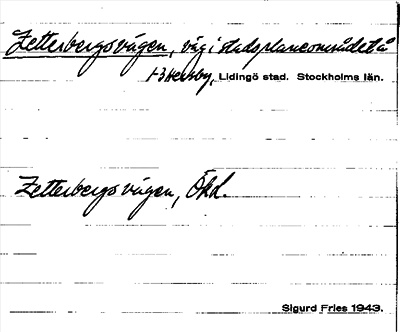 Zetterbergsvägen, väg i stadsplaneområdet å
Hersby, Lidingö stad. Stockholms län.
Zetterbergsvägen, Ökd.
Sigurd Fries 1943.